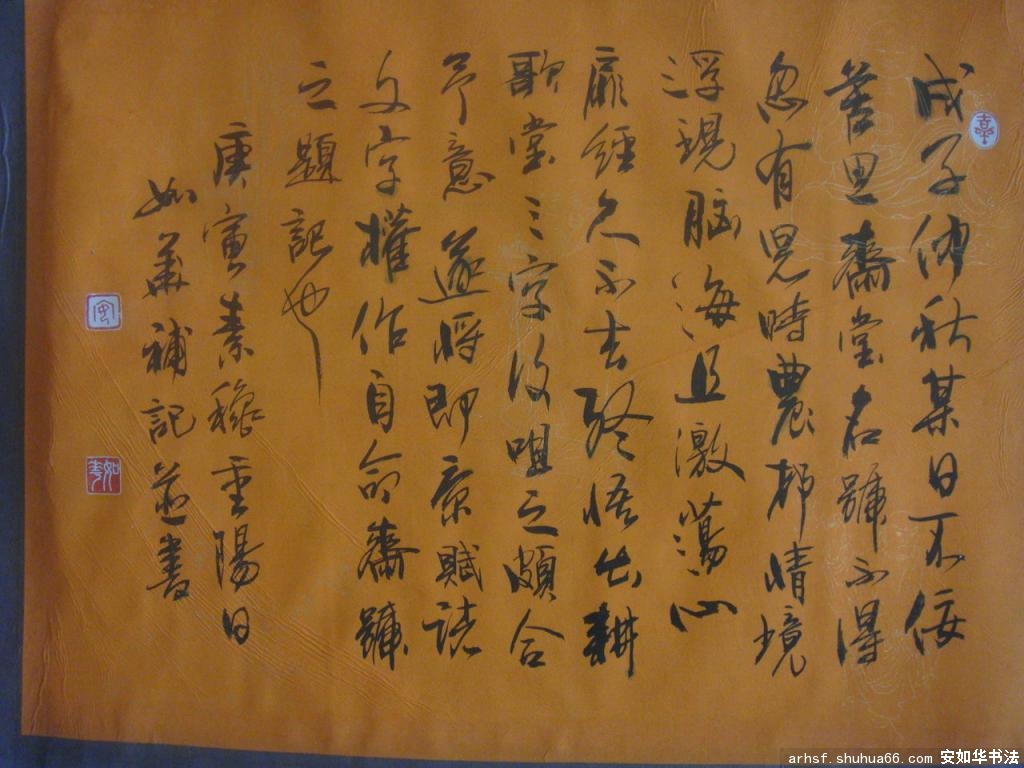 戊子仲秋某日不佞
苦思齋堂名號不得
忽有兒時農村情境
浮現腦海且激蕩心
扉經久不去終悟出耕
歌堂三字仮咀之頗合
予意遂將即景賦詩
文字權作自命齋號
之題記也
庚寅季穐重陽日
如華補記並書
arhsf.shuhua66.com 安如华书法